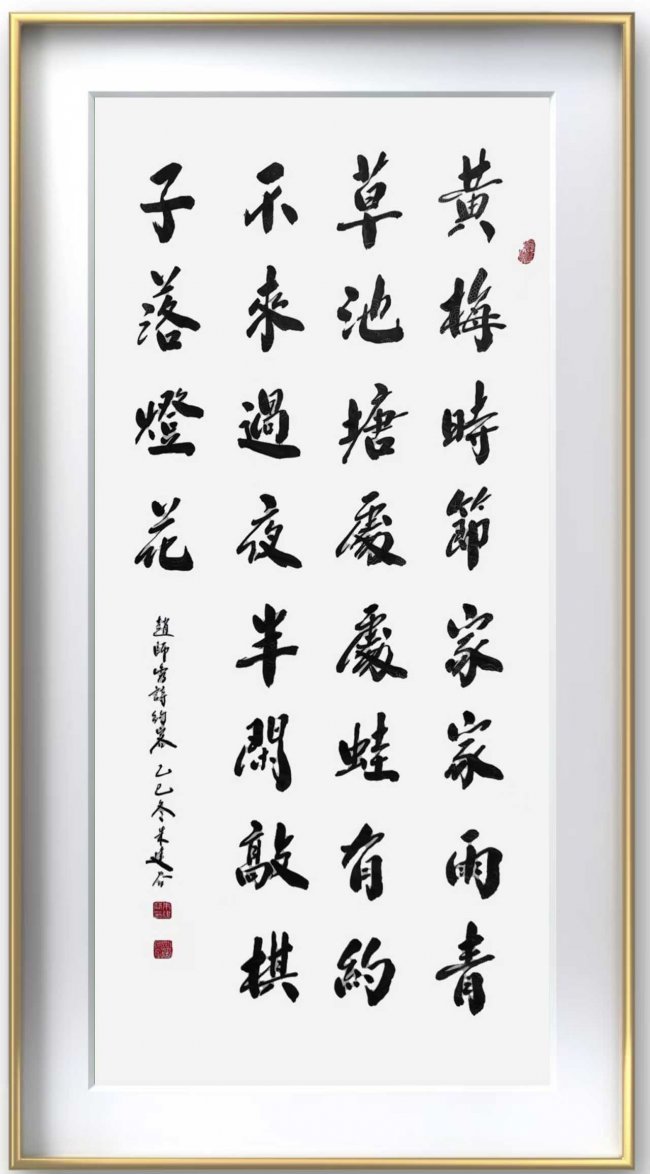 黃梅時節家家雨青
草池塘處處蛙有約
不來過夜半閑敲棋
子落燈花
趙師秀詩約客 乙巳冬朱建谷